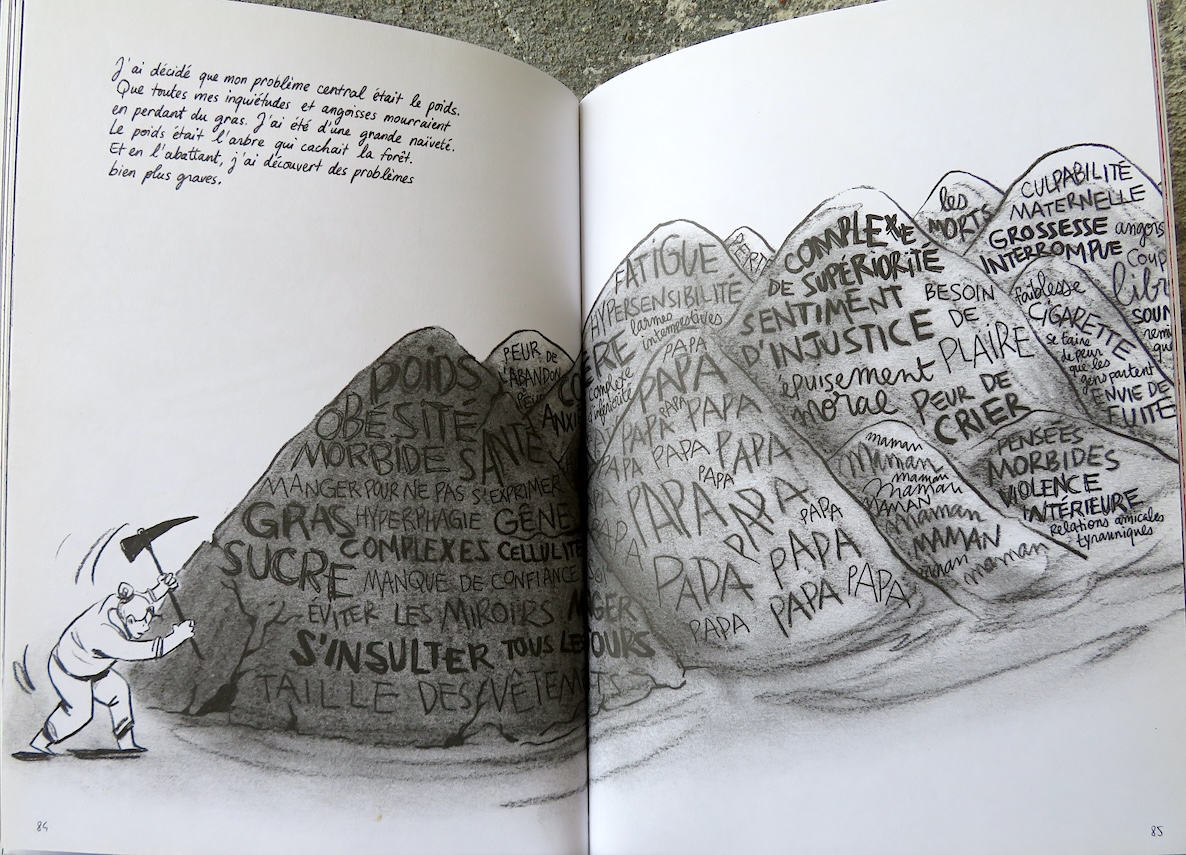 J'ai décidé que mon problème central était le poids.
Que toutes mes inquiétudes et angoisses mourraient
en perdant du gras. J'ai été d'une grande naïveté.
Le poids était l'arbre qui cachait la forêt.
Et en l'abattant, j'ai découvert des problèmes
bien plus graves.
POIDS
OBÉSITÉ
MORBIDE SANTÉ
MANGER POUR NE PAS S'EXPRIMER
GRAS HYPERPHAGIE GÊNE
SUCRE COMPLEXES CELLULITE
MANQUE DE CONFIANCE
ÉVITER LES MIROIRS
S'INSULTER TOUS LES JOURS
TAILLE DES VÊTEMENTS
PEUR DE
L'ABANDON
PEUR
84
FATIGUE
HYPERSENSIBILITÉ
larmes
intempestives
complexe
d'infériorité
PAPA
PAPA
PAPA
PAPA PAPA
PAPA PAPA PAPA
PAPA
PAPA PAPA
PAPA
PAPA PAPA
PAPA PAPA PAPA
COMPLEXE
DE SUPÉRIORITÉ
SENTIMENT
D'INJUSTICE
épuisement
moral
BESOIN
DE
PLAIRE
PEUR DE
CRIER
les
MORTS
CULPABILITÉ
MATERNELLE
GROSSESSE
INTERROMPUE
faiblesse
CIGARETTE
se taire
de peur
que les
gens partent
ENVIE DE
FUITE
maman
maman
maman
maman
MAMAN
maman
MAMAN
maman maman
PENSÉES
MORBIDES
VIOLENCE
INTÉRIEURE
Relations amicales
tyranniques
85